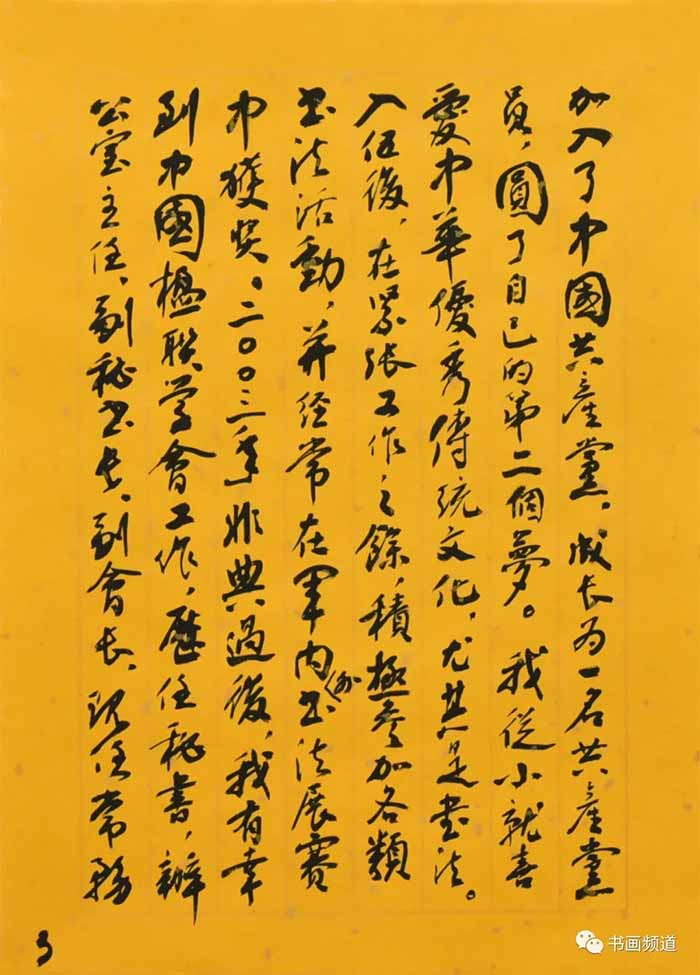 加入了中國共產黨，成长为一名共產黨
员，圓了自己的第二個夢。我從小就喜
愛中華優秀傳統文化，尤其是书法。
入伍後，在緊張工作之餘，積極参加各類
书法活動，并经常在軍内外书法展賽
中獲奖。二〇〇三年非典過後，我有幸
到中國楹联学會工作，歷任秘書，辦
公室主任、副秘书长、副會长、现任常務
3
书画频道